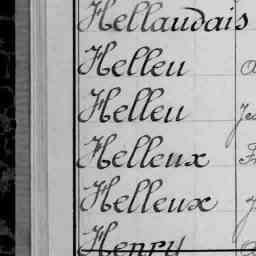 Hellaudais
Helleu
Helleu
Helleux
Helleux
Henry